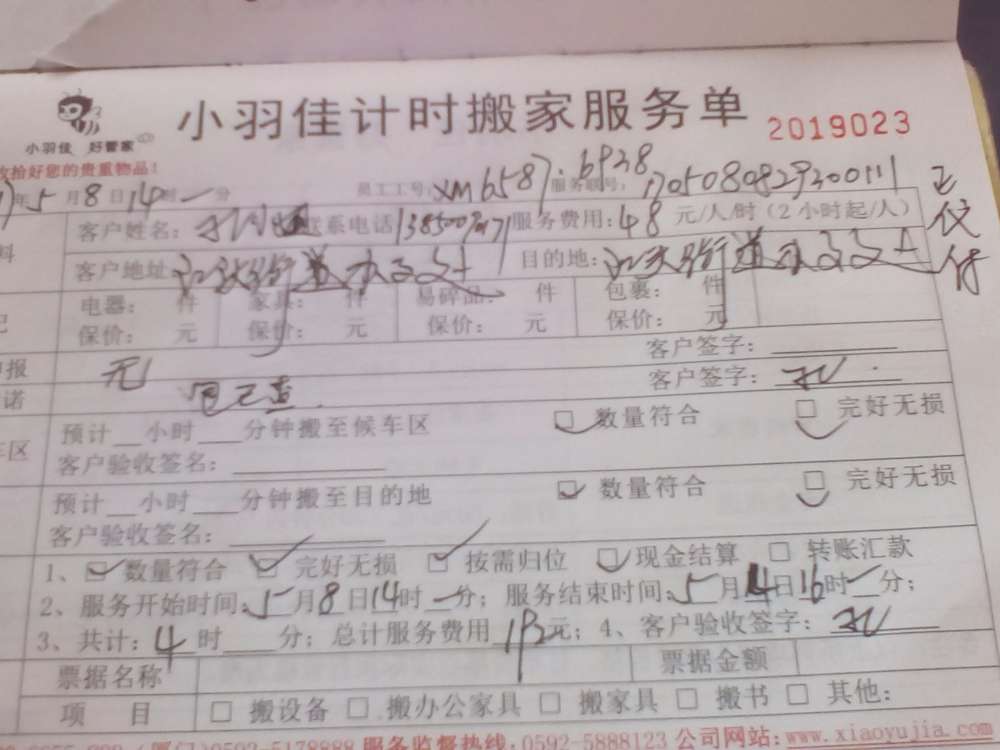 小羽佳计时搬家服务单 2019023
小羽佳 好管家
收拾好您的贵重物品！
年5月8日14时一分 员工工号：xm6587.6928 服务联号：
客户姓名： 联系电话 服务费用：48元/人/时（2小时起/人）
客户地址： 街道办 目的地： 街道办
电器： 件 家具： 件 易碎品： 件 包裹： 件
保价： 元 保价： 元 保价： 元 保价： 元
申报 客户签字：
诺 无 客户签字：
车区 预计 小时 分钟搬至候车区 数量符合 完好无损
客户验收签名：
预计 小时 分钟搬至目的地 数量符合 完好无损
客户验收签名：
1、 数量符合 完好无损 按需归位 现金结算 转账汇款
2、服务开始时间：5月8日14时一分；服务结束时间：5月14日16时一分；
3、共计：4时 分；总计服务费用 元；4、客户验收签字：
票据名称 票据金额
项 目 搬设备 搬办公家具 搬家具 搬书 其他：
0592-5178888 服务监督热线：0592-5888123 公司网站：www.xiaoyujia.com